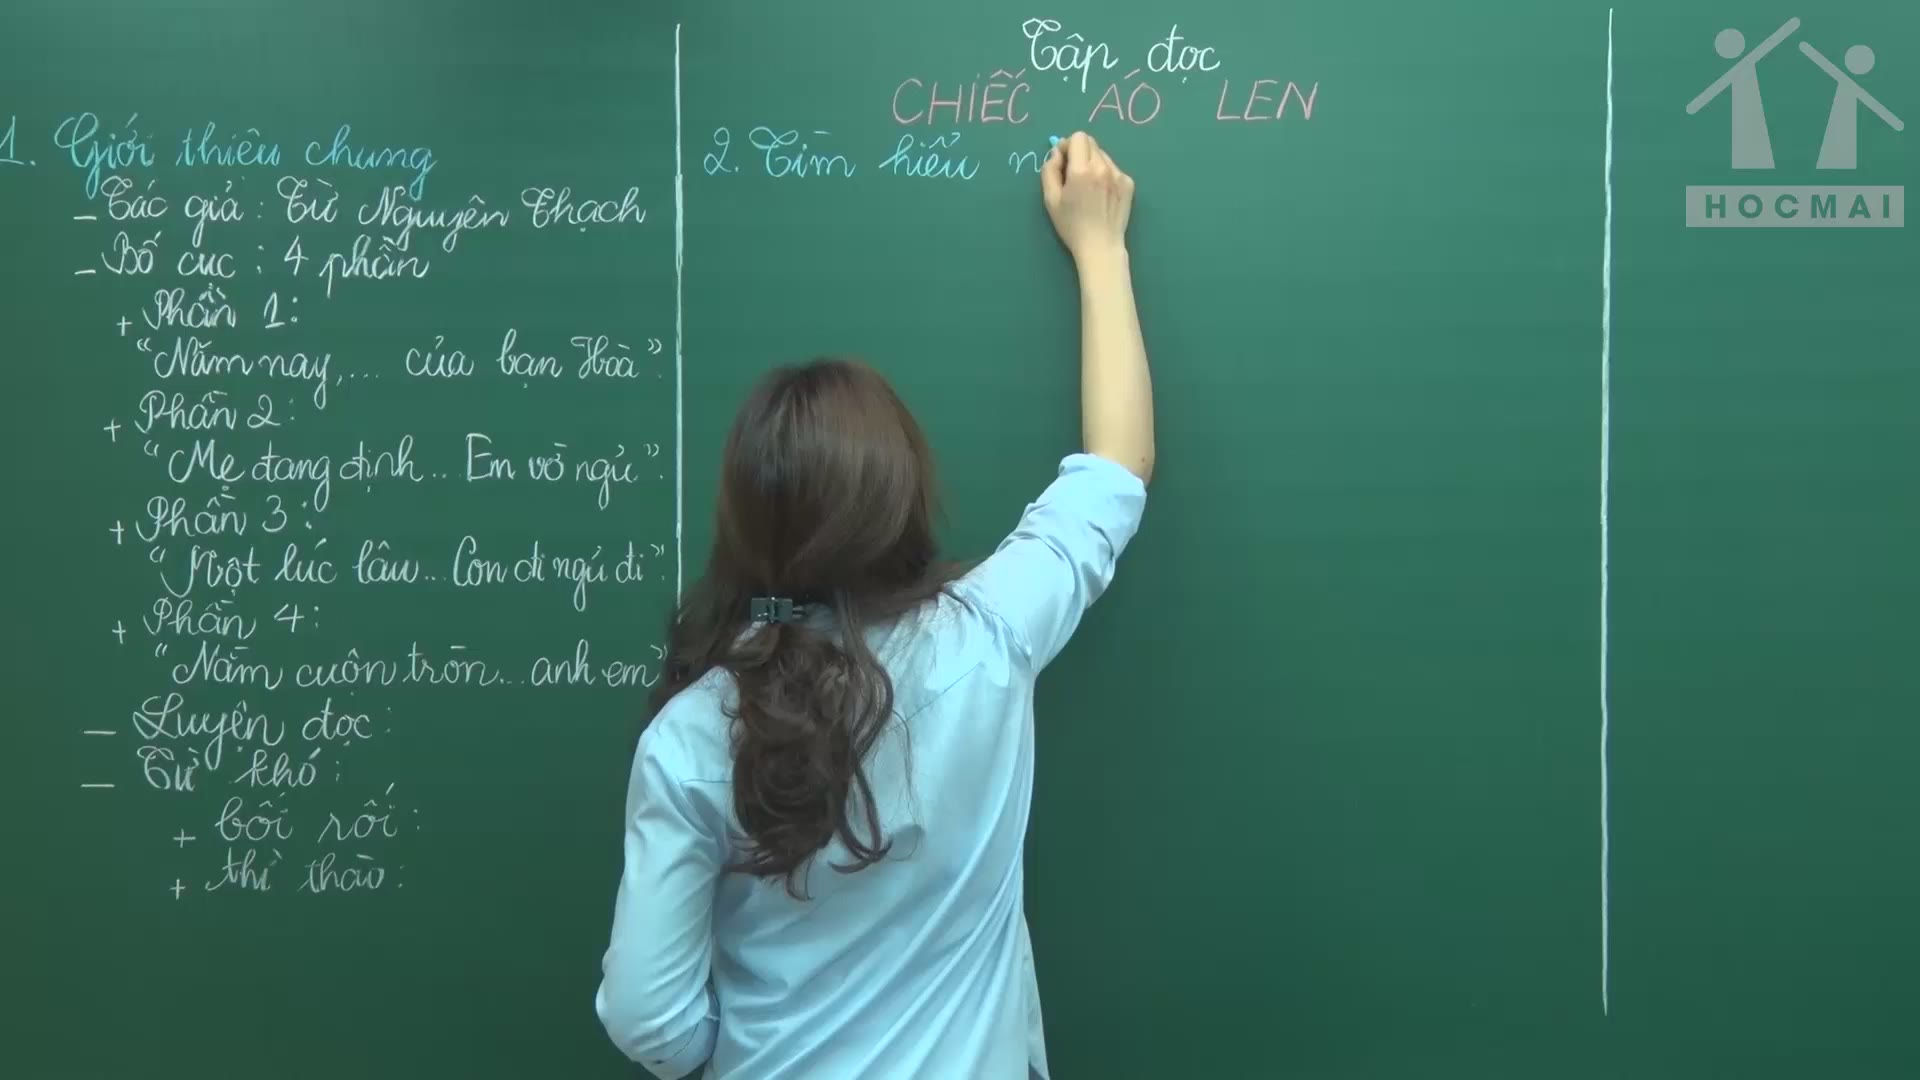 Tập đọc
CHIẾC ÁO LEN
1. Giới thiệu chung
– Tác giả : Từ Nguyên Thạch
– Bố cục : 4 phần
+ Phần 1:
“Năm nay,... của bạn Hoà”.
+ Phần 2:
“Mẹ đang định... Em vờ ngủ”.
+ Phần 3:
“Một lúc lâu... Con đi ngủ đi”.
+ Phần 4:
“Nằm cuộn tròn... anh em”
– Luyện đọc :
– Từ khó :
+ bối rối :
+ thì thào :
2. Tìm hiểu
HOCMAI